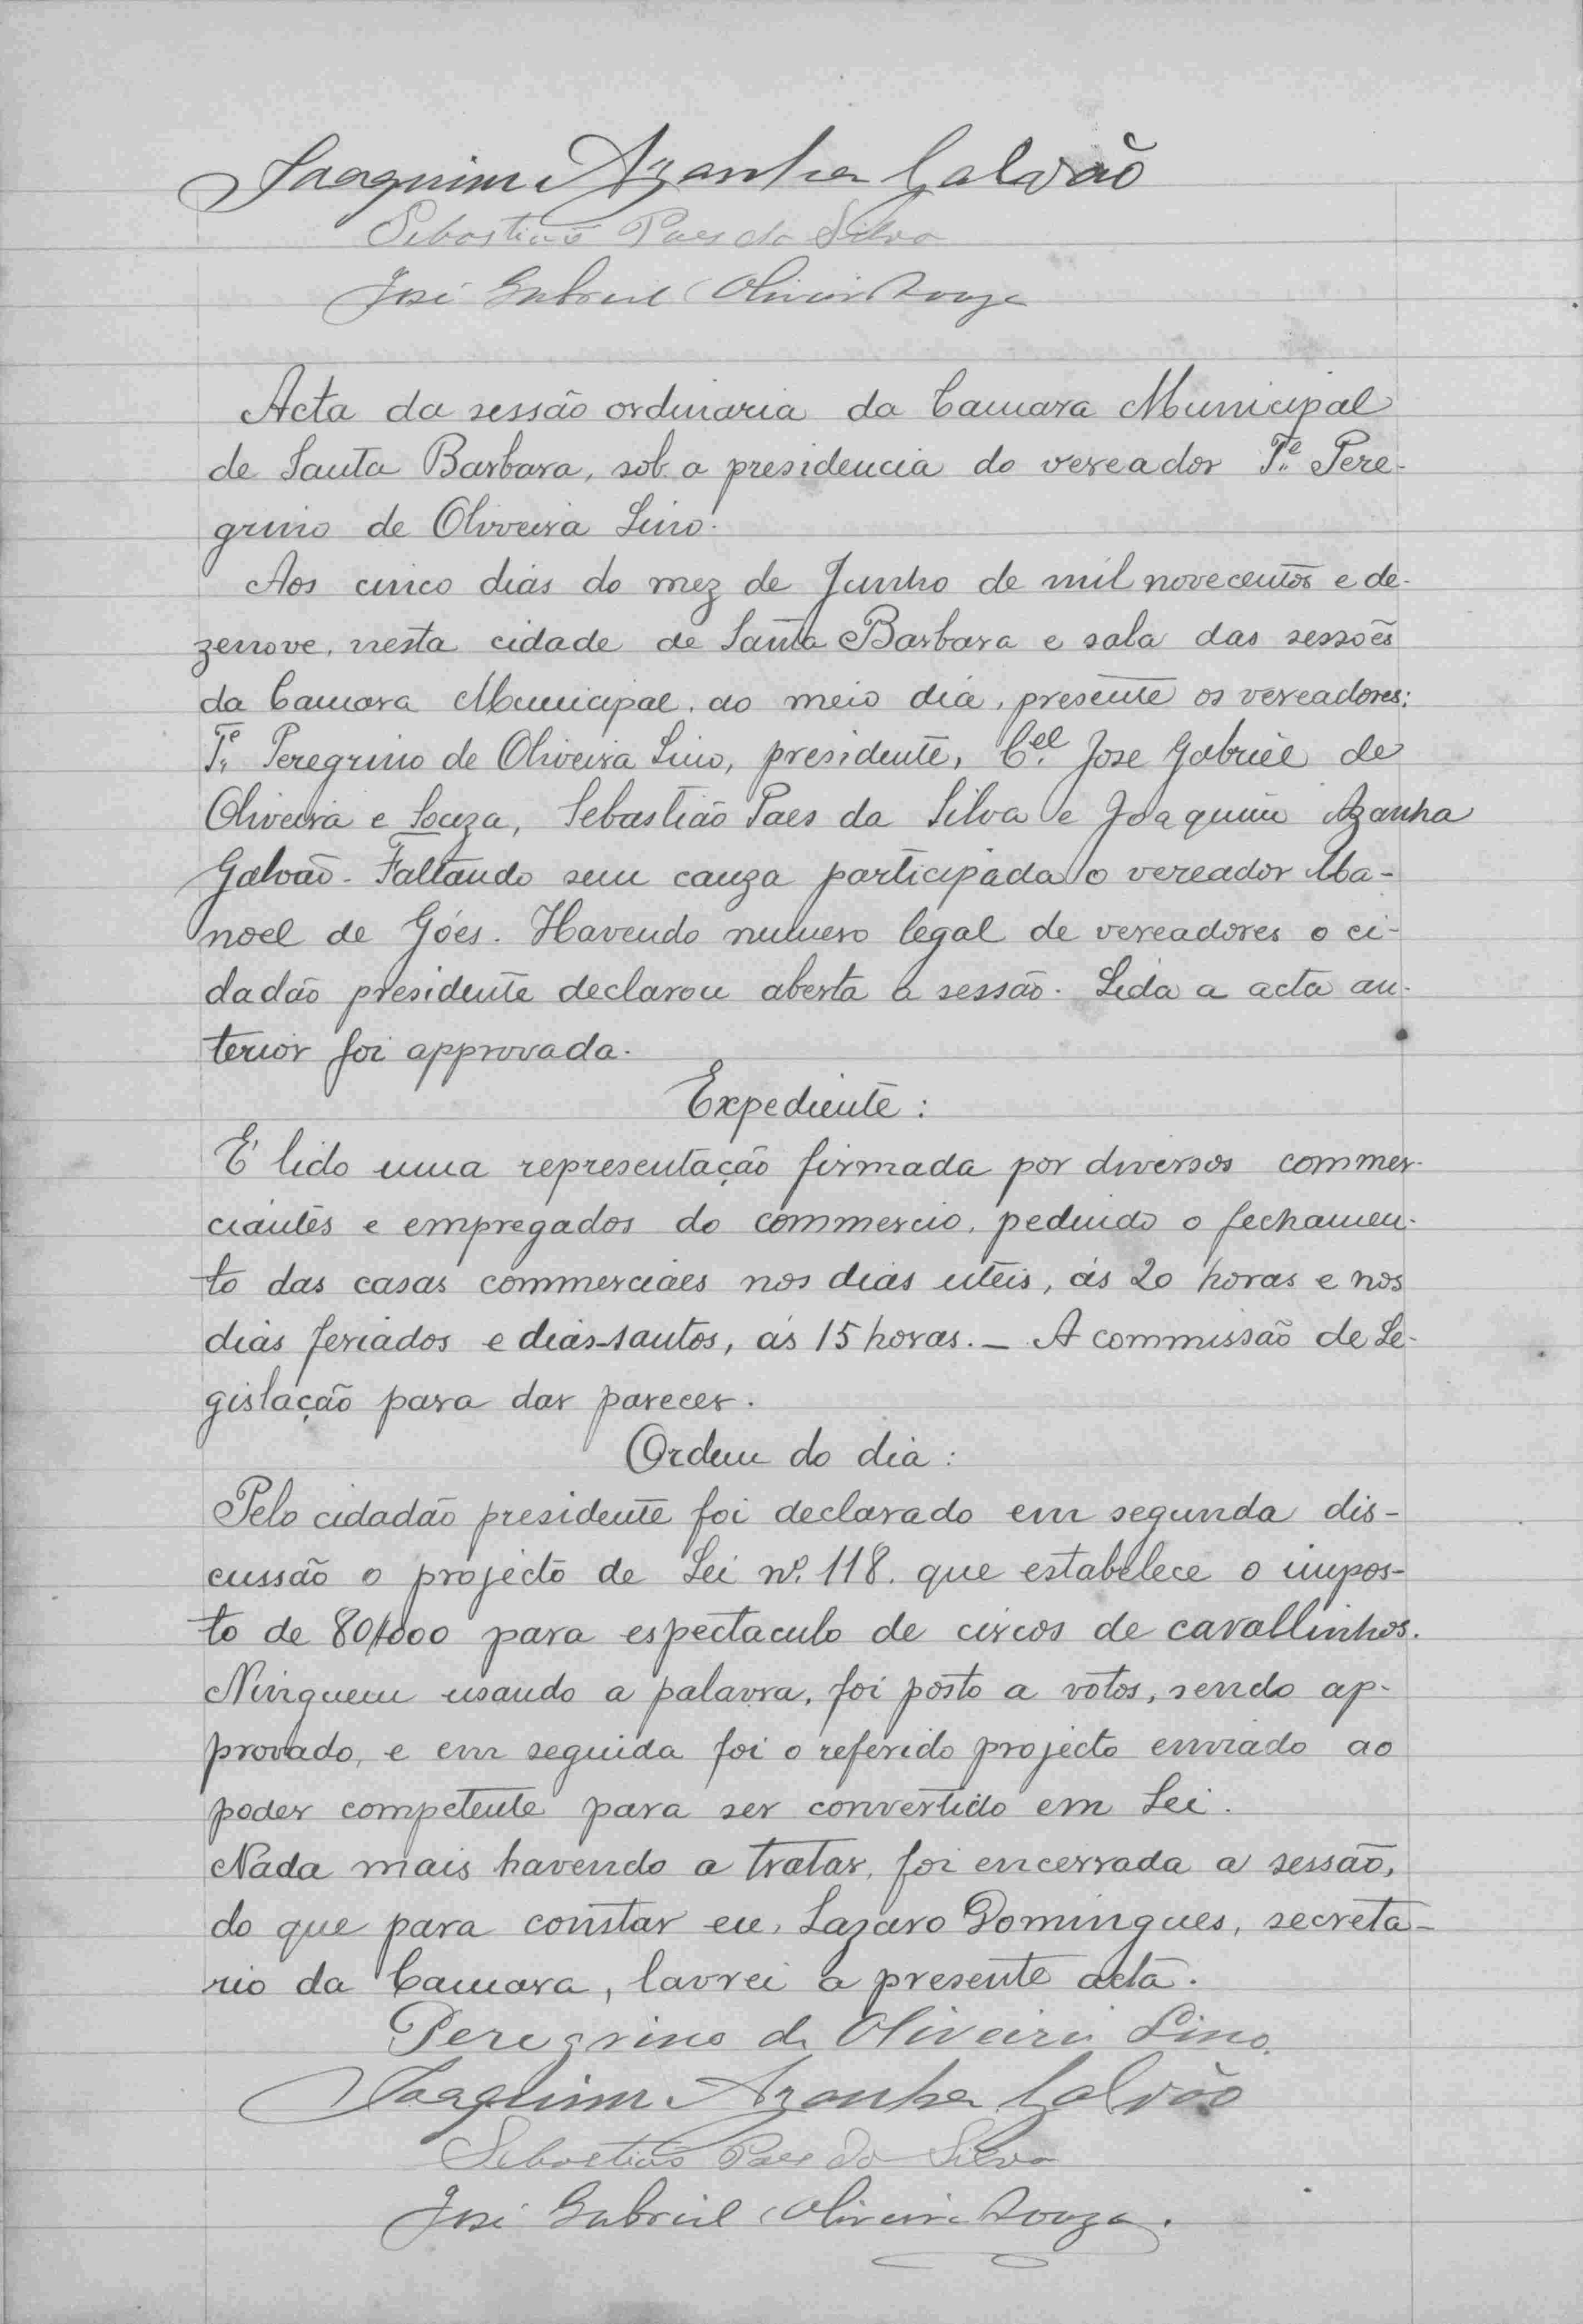 Joaquim Azanha Galvão
Sebastião Paes da Silva
José Gabriel Oliveira Souza
Acta da sessão ordinaria da Camara Municipal
de Santa Barbara, sob a presidencia do vereador Te. Pere-
grino de Oliveira Lino.
Aos cinco dias do mez de Junho de mil novecentos e de-
zenove, nesta cidade de Santa Barbara e sala das sessões
da Camara Municipal, ao meio dia, presente os vereadores:
Te. Peregrino de Oliveira Lino, presidente, Cel. Jose Gabriel de
Oliveira e Souza, Sebastião Paes da Silva e Joaquim Azanha
Galvão. Faltando sem cauza participada o vereador Ma-
noel de Góes. Havendo numero legal de vereadores o ci-
dadão presidente declarou aberta a sessão. Lida a acta an-
terior foi approvada.
Expediente:
E' lido uma representação firmada por diversos commer-
ciantes e empregados do commercio, pedindo o fechamen-
to das casas commerciaes nos dias uteis, ás 20 horas e nos
dias feriados e dias-santos, ás 15 horas. _ A commissão de Le-
gislação para dar parecer.
Ordem do dia:
Pelo cidadão presidente foi declarado em segunda dis-
cussão o projecto de Lei nº. 118, que estabelece o impos-
to de 80$000 para espectaculo de circos de cavallinhos.
Ninguem usando a palavra, foi posto a votos, sendo ap-
provado, e em seguida foi o referido projecto enviado ao
poder competente para ser convertido em Lei.
Nada mais havendo a tratar, foi encerrada a sessão,
do que para constar eu, Lazaro Domingues, secreta-
rio da Camara, lavrei a presente acta.
Peregrino de Oliveira Lino.
Joaquim Azanha Galvão
Sebastião Paes da Silva
José Gabriel Oliveira Souza.